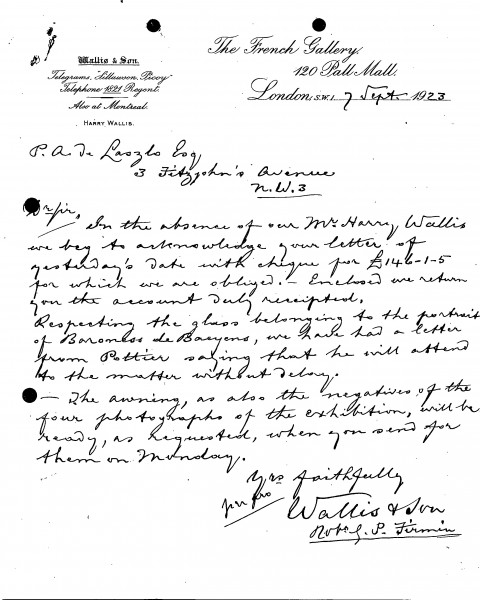 Wallis & Son.
Telegrams, Piccy
Telephone 1821 Regent.
Also at Montreal.
HARRY WALLIS.
The French Gallery,
120 Pall Mall.
London, S.W.1 7 Sept 1923
P. A. de Laszlo Esq
3 Fitzjohn's Avenue
N.W.3
Dr Sir,
In the absence of our Mr Harry Wallis
we beg to acknowledge your letter of
yesterday's date with cheque for £146-1-5
for which we are obliged. — Enclosed we return
you the account duly receipted.
Respecting the glass belonging to the portrait
of Baroness de Baeyens, we have had a letter
from Pottier saying that he will attend
to the matter without delay.
— The awning, as also the negatives of the
four photographs of the exhibition, will be
ready, as requested, when you send for
them on Monday.
Yrs faithfully
per pro
Wallis & Son
Robt G. P. Firmin